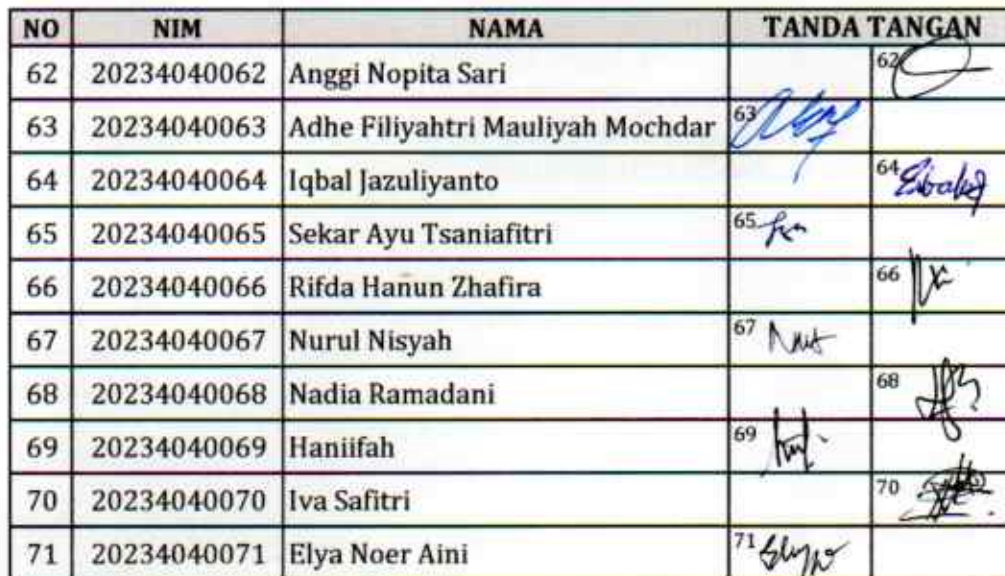 NO NIM NAMA TANDA TANGAN
62 20234040062 Anggi Nopita Sari 62
63 20234040063 Adhe Filiyahtri Mauliyah Mochdar 63
64 20234040064 Iqbal Jazuliyanto 64
65 20234040065 Sekar Ayu Tsaniafitri 65
66 20234040066 Rifda Hanun Zhafira 66
67 20234040067 Nurul Nisyah 67
68 20234040068 Nadia Ramadani 68
69 20234040069 Haniifah 69
70 20234040070 Iva Safitri 70
71 20234040071 Elya Noer Aini 71